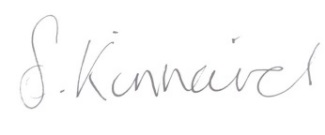 S. Kinnaird